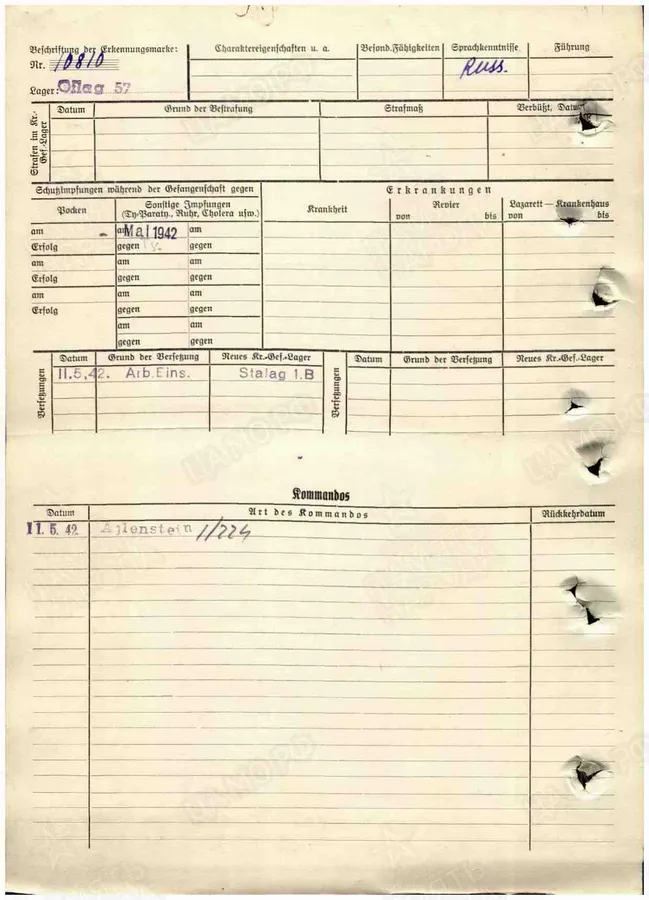 Beschriftung der Erkennungsmarke:
Nr. 10810
Lager: Oflag 57
Charaktereigenschaften u. a.
Besond. Fähigkeiten
Sprachkenntnisse
Russ.
Führung
Strafen im Kr.-Gef.-Lager
Datum
Grund der Bestrafung
Strafmaß
Verbüßt, Datum
Schutzimpfungen während der Gefangenschaft gegen
Erkrankungen
Pocken
Sonstige Impfungen
(Ty-Paraty., Ruhr, Cholera usw.)
Krankheit
Revier
von bis
Lazarett — Krankenhaus
von bis
am am Mai 1942 am
Erfolg gegen gegen
am am am
Erfolg gegen gegen
am am am
Erfolg gegen gegen
am am
gegen gegen
Versetzungen
Datum Grund der Versetzung Neues Kr.-Gef.-Lager
11.5.42. Arb.Eins. Stalag 1.B
Versetzungen
Datum Grund der Versetzung Neues Kr.-Gef.-Lager
Kommandos
Datum Art des Kommandos Rückkehrdatum
11. 5. 42. Allenstein 1/224